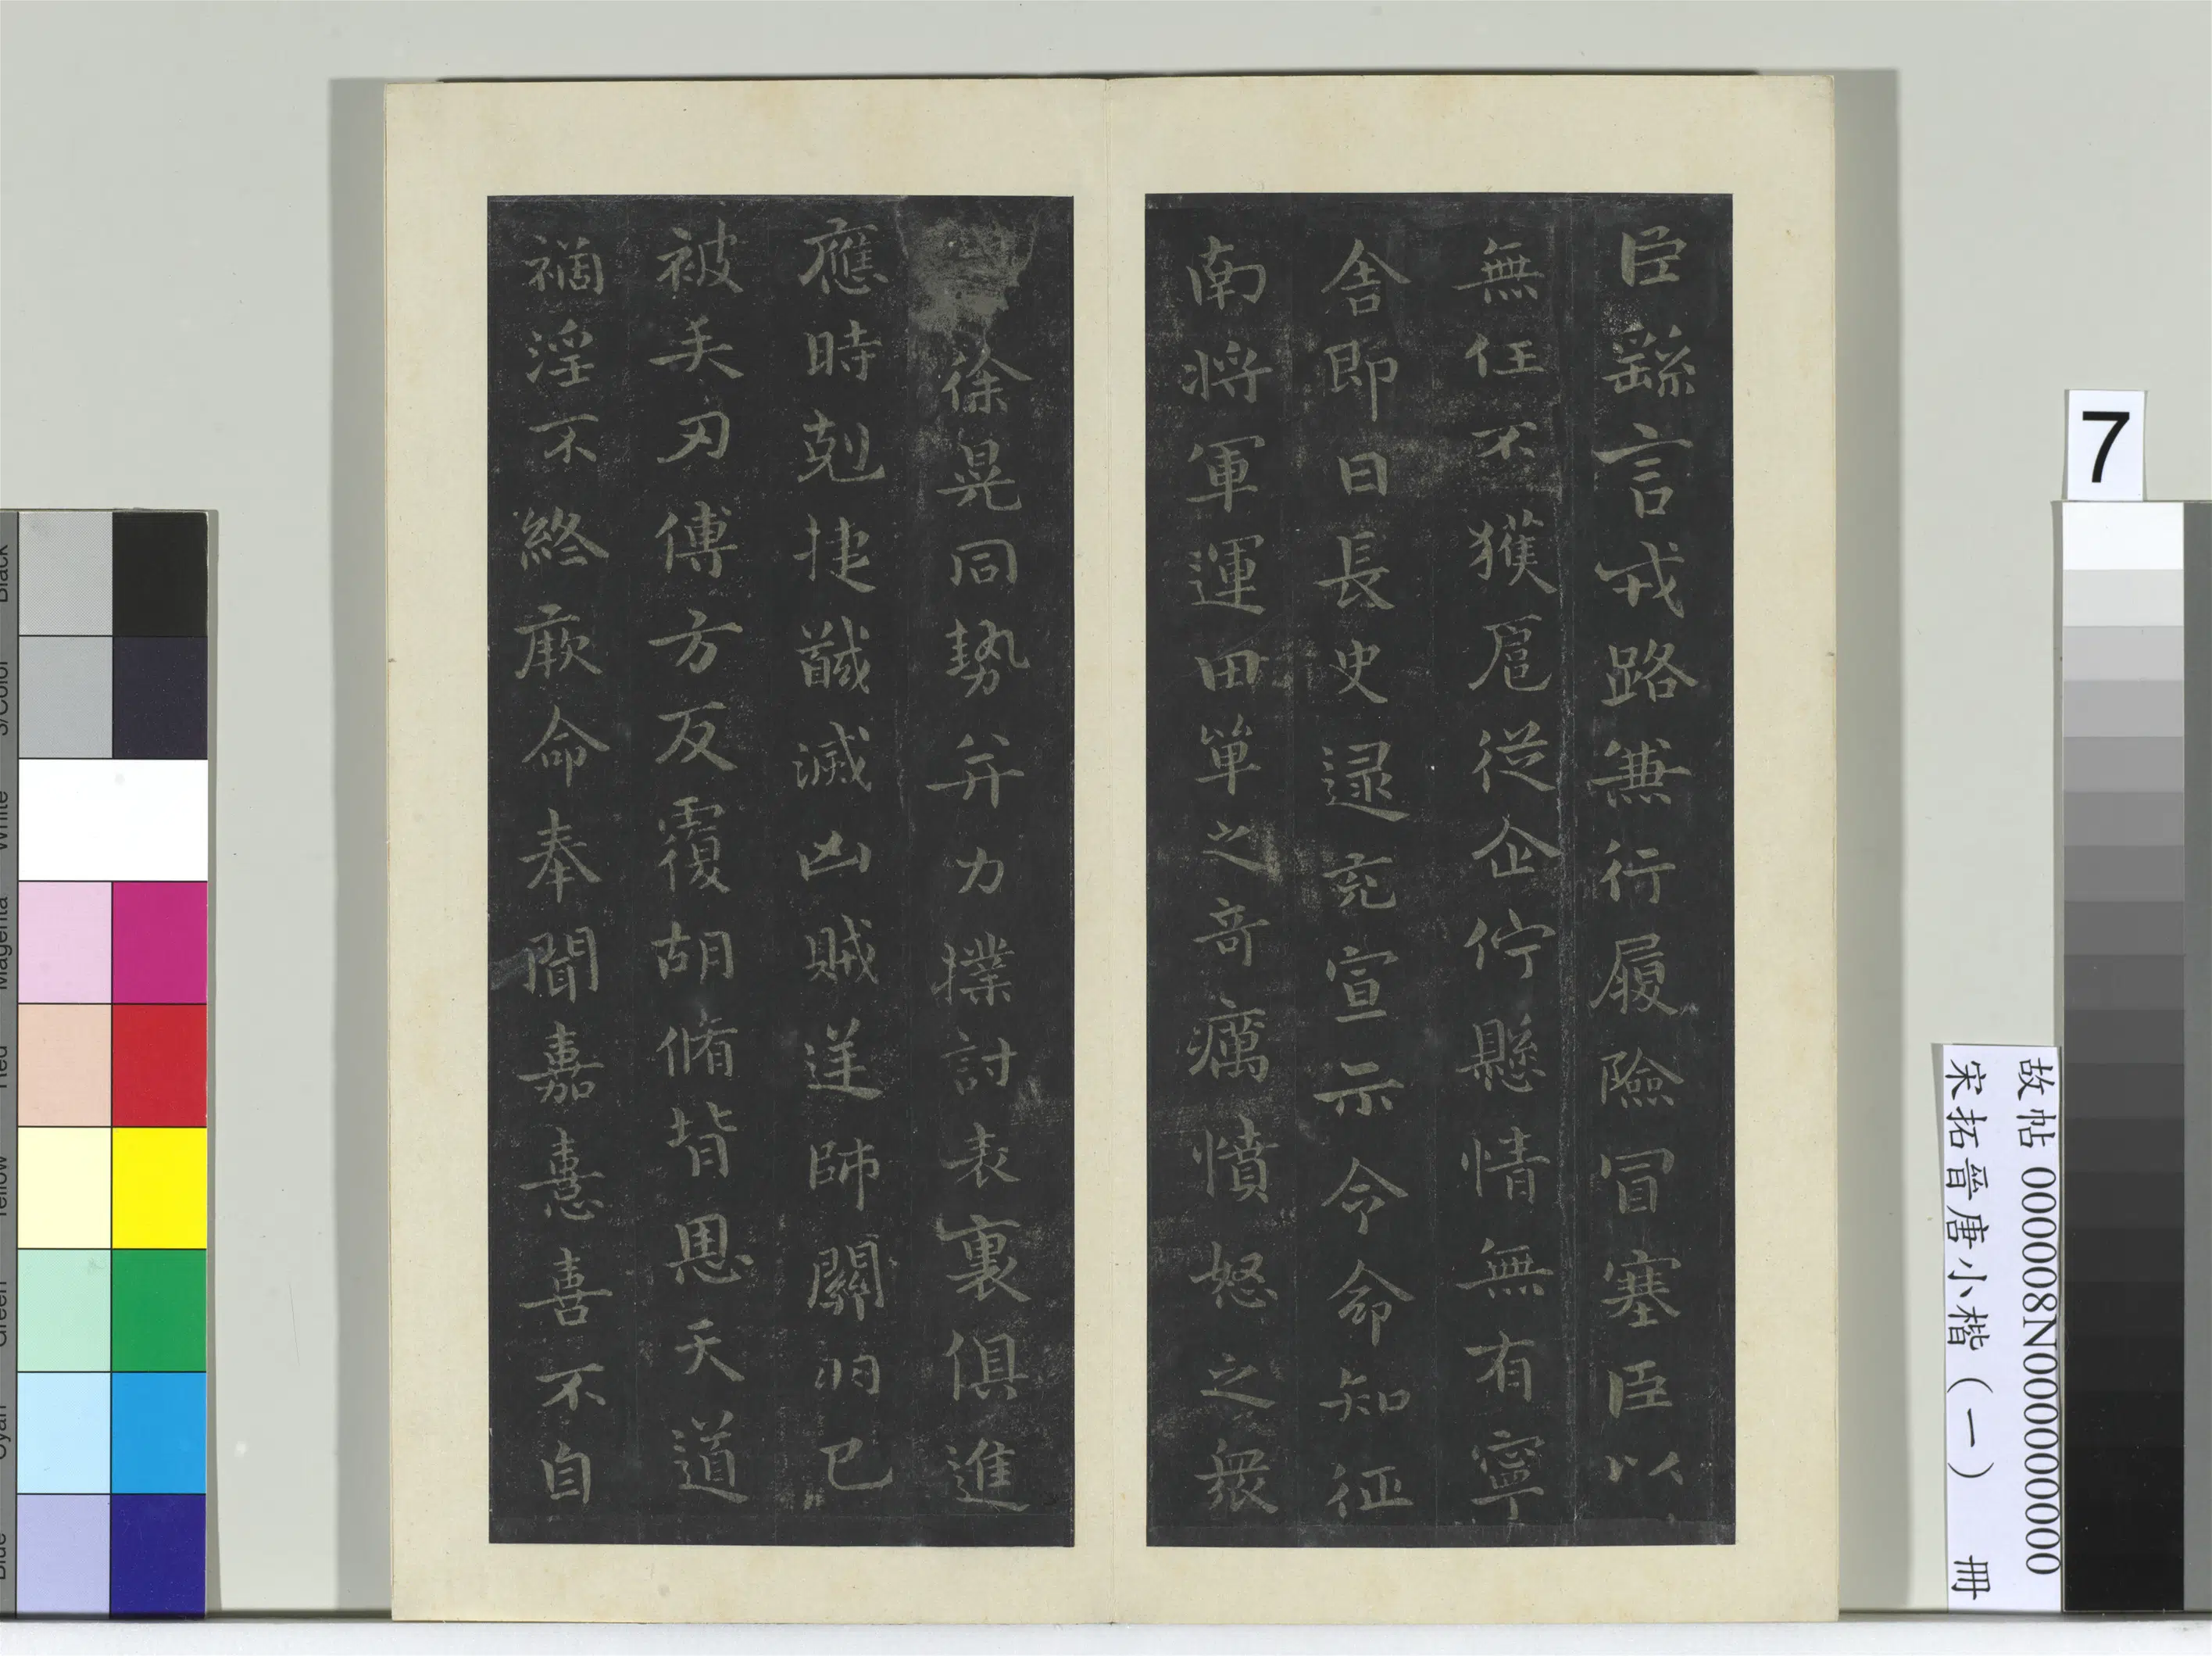 臣繇言戎路兼行履險冒塞臣以
無任不獲扈從企佇懸情無有寧
舍即日長史逯充宣示令命知征
南將軍運田單之奇厲憤怒之衆
徐晃同勢并力撲討表裏俱進
應時剋捷馘滅凶賊逆師關羽已
被矢刃傅方反覆胡脩背恩天道
禍淫不終厥命奉聞嘉憙喜不自
7
故帖 000008N000000000
宋拓晉唐小楷（一） 冊
Black
3/Color
White
Magenta
Red
Yellow
Green
Cyan
Blue